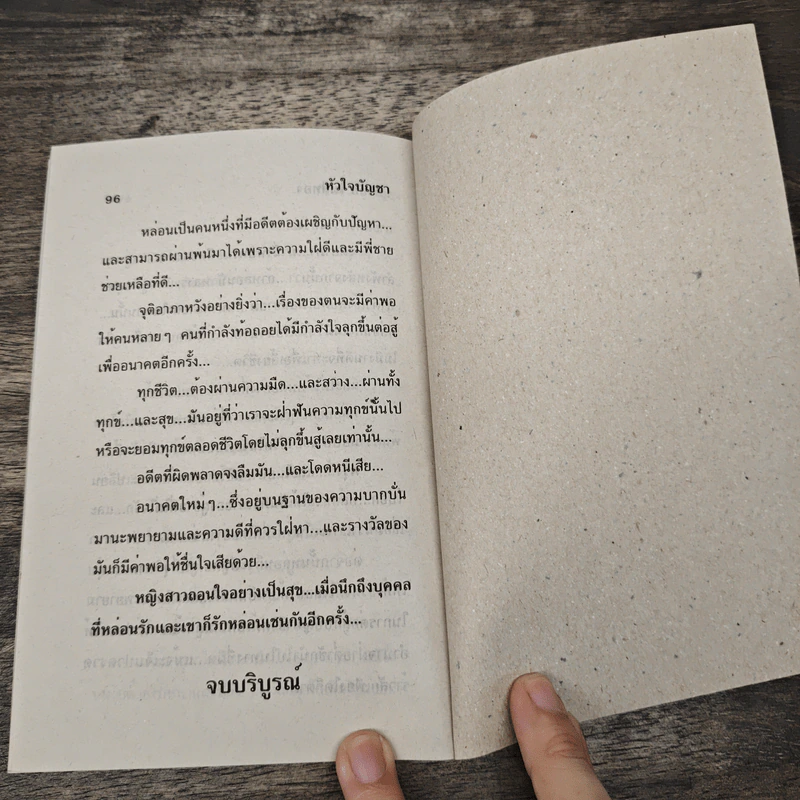 96 หัวใจบัญชา
หล่อนเป็นคนหนึ่งที่มีอดีตต้องเผชิญกับปัญหา...
และสามารถผ่านพ้นมาได้เพราะความใฝ่ดีและมีพี่ชาย
ช่วยเหลือที่ดี...
จุติอาภาหวังอย่างยิ่งว่า...เรื่องของตนจะมีค่าพอ
ให้คนหลายๆ คนที่กำลังท้อถอยได้มีกำลังใจลุกขึ้นต่อสู้
เพื่ออนาคตอีกครั้ง...
ทุกชีวิต...ต้องผ่านความมืด...และสว่าง...ผ่านทั้ง
ทุกข์...และสุข...มันอยู่ที่ว่าเราจะฝ่าฟันความทุกข์นั้นไป
หรือจะยอมทุกข์ตลอดชีวิตโดยไม่ลุกขึ้นสู้เลยเท่านั้น...
อดีตที่ผิดพลาดจงลืมมัน...และโดดหนีเสีย...
อนาคตใหม่ๆ...ซึ่งอยู่บนฐานของความบากบั่น
มานะพยายามและความดีที่ควรใฝ่หา...และรางวัลของ
มันก็มีค่าพอให้ชื่นใจเสียด้วย...
หญิงสาวถอนใจอย่างเป็นสุข...เมื่อนึกถึงบุคคล
ที่หล่อนรักและเขาก็รักหล่อนเช่นกันอีกครั้ง...
จบบริบูรณ์